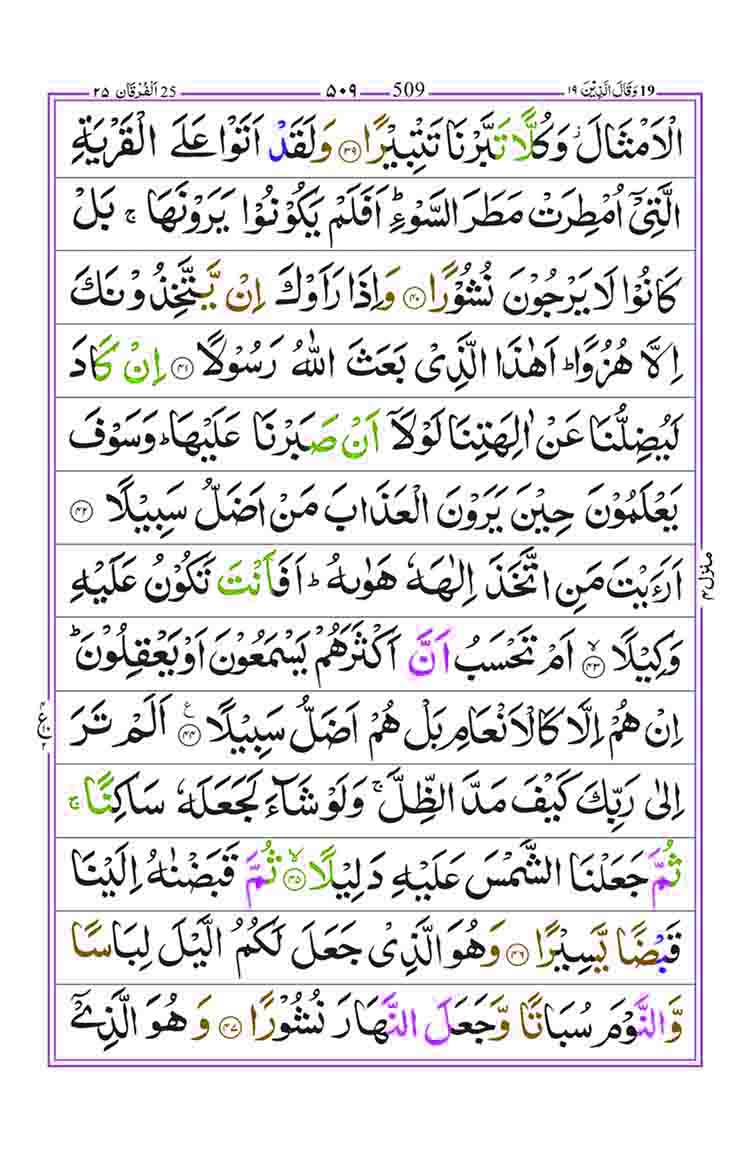 19 وَقَالَ الَّذِيْنَ ١٩ 509 ۵۰۹ 25 اَلْفُرْقَان ٢٥
الْاَمْثَالَ ز وَكُلًّا تَبَّرْنَا تَتْبِيْرًا ۝۳۹ وَلَقَدْ اَتَوْا عَلَى الْقَرْيَةِ
الَّتِىْۤ اُمْطِرَتْ مَطَرَ السَّوْءِ ؕ اَفَلَمْ يَكُوْنُوْا يَرَوْنَهَا ۚ بَلْ
كَانُوْا لَا يَرْجُوْنَ نُشُوْرًا ۝۴۰ وَاِذَا رَاَوْكَ اِنْ يَّتَّخِذُوْنَكَ
اِلَّا هُزُوًا ؕ اَهٰذَا الَّذِىْ بَعَثَ اللّٰهُ رَسُوْلًا ۝۴۱ اِنْ كَادَ
لَيُضِلُّنَا عَنْ اٰلِهَتِنَا لَوْلَاۤ اَنْ صَبَرْنَا عَلَيْهَا ؕ وَسَوْفَ
يَعْلَمُوْنَ حِيْنَ يَرَوْنَ الْعَذَابَ مَنْ اَضَلُّ سَبِيْلًا ۝۴۲
اَرَءَيْتَ مَنِ اتَّخَذَ اِلٰهَهٗ هَوٰىهُ ؕ اَفَاَنْتَ تَكُوْنُ عَلَيْهِ
وَكِيْلًا ۙ۝۴۳ اَمْ تَحْسَبُ اَنَّ اَكْثَرَهُمْ يَسْمَعُوْنَ اَوْ يَعْقِلُوْنَ ؕ
اِنْ هُمْ اِلَّا كَالْاَنْعَامِ بَلْ هُمْ اَضَلُّ سَبِيْلًا ۝۴۴ ع اَلَمْ تَرَ
اِلٰى رَبِّكَ كَيْفَ مَدَّ الظِّلَّ ۚ وَلَوْ شَآءَ لَجَعَلَهٗ سَاكِنًا ۚ
ثُمَّ جَعَلْنَا الشَّمْسَ عَلَيْهِ دَلِيْلًا ۙ۝۴۵ ثُمَّ قَبَضْنٰهُ اِلَيْنَا
قَبْضًا يَّسِيْرًا ۝۴۶ وَهُوَ الَّذِىْ جَعَلَ لَكُمُ الَّيْلَ لِبَاسًا
وَّالنَّوْمَ سُبَاتًا وَّجَعَلَ النَّهَارَ نُشُوْرًا ۝۴۷ وَهُوَ الَّذِىْۤ
منزل ۴
ع